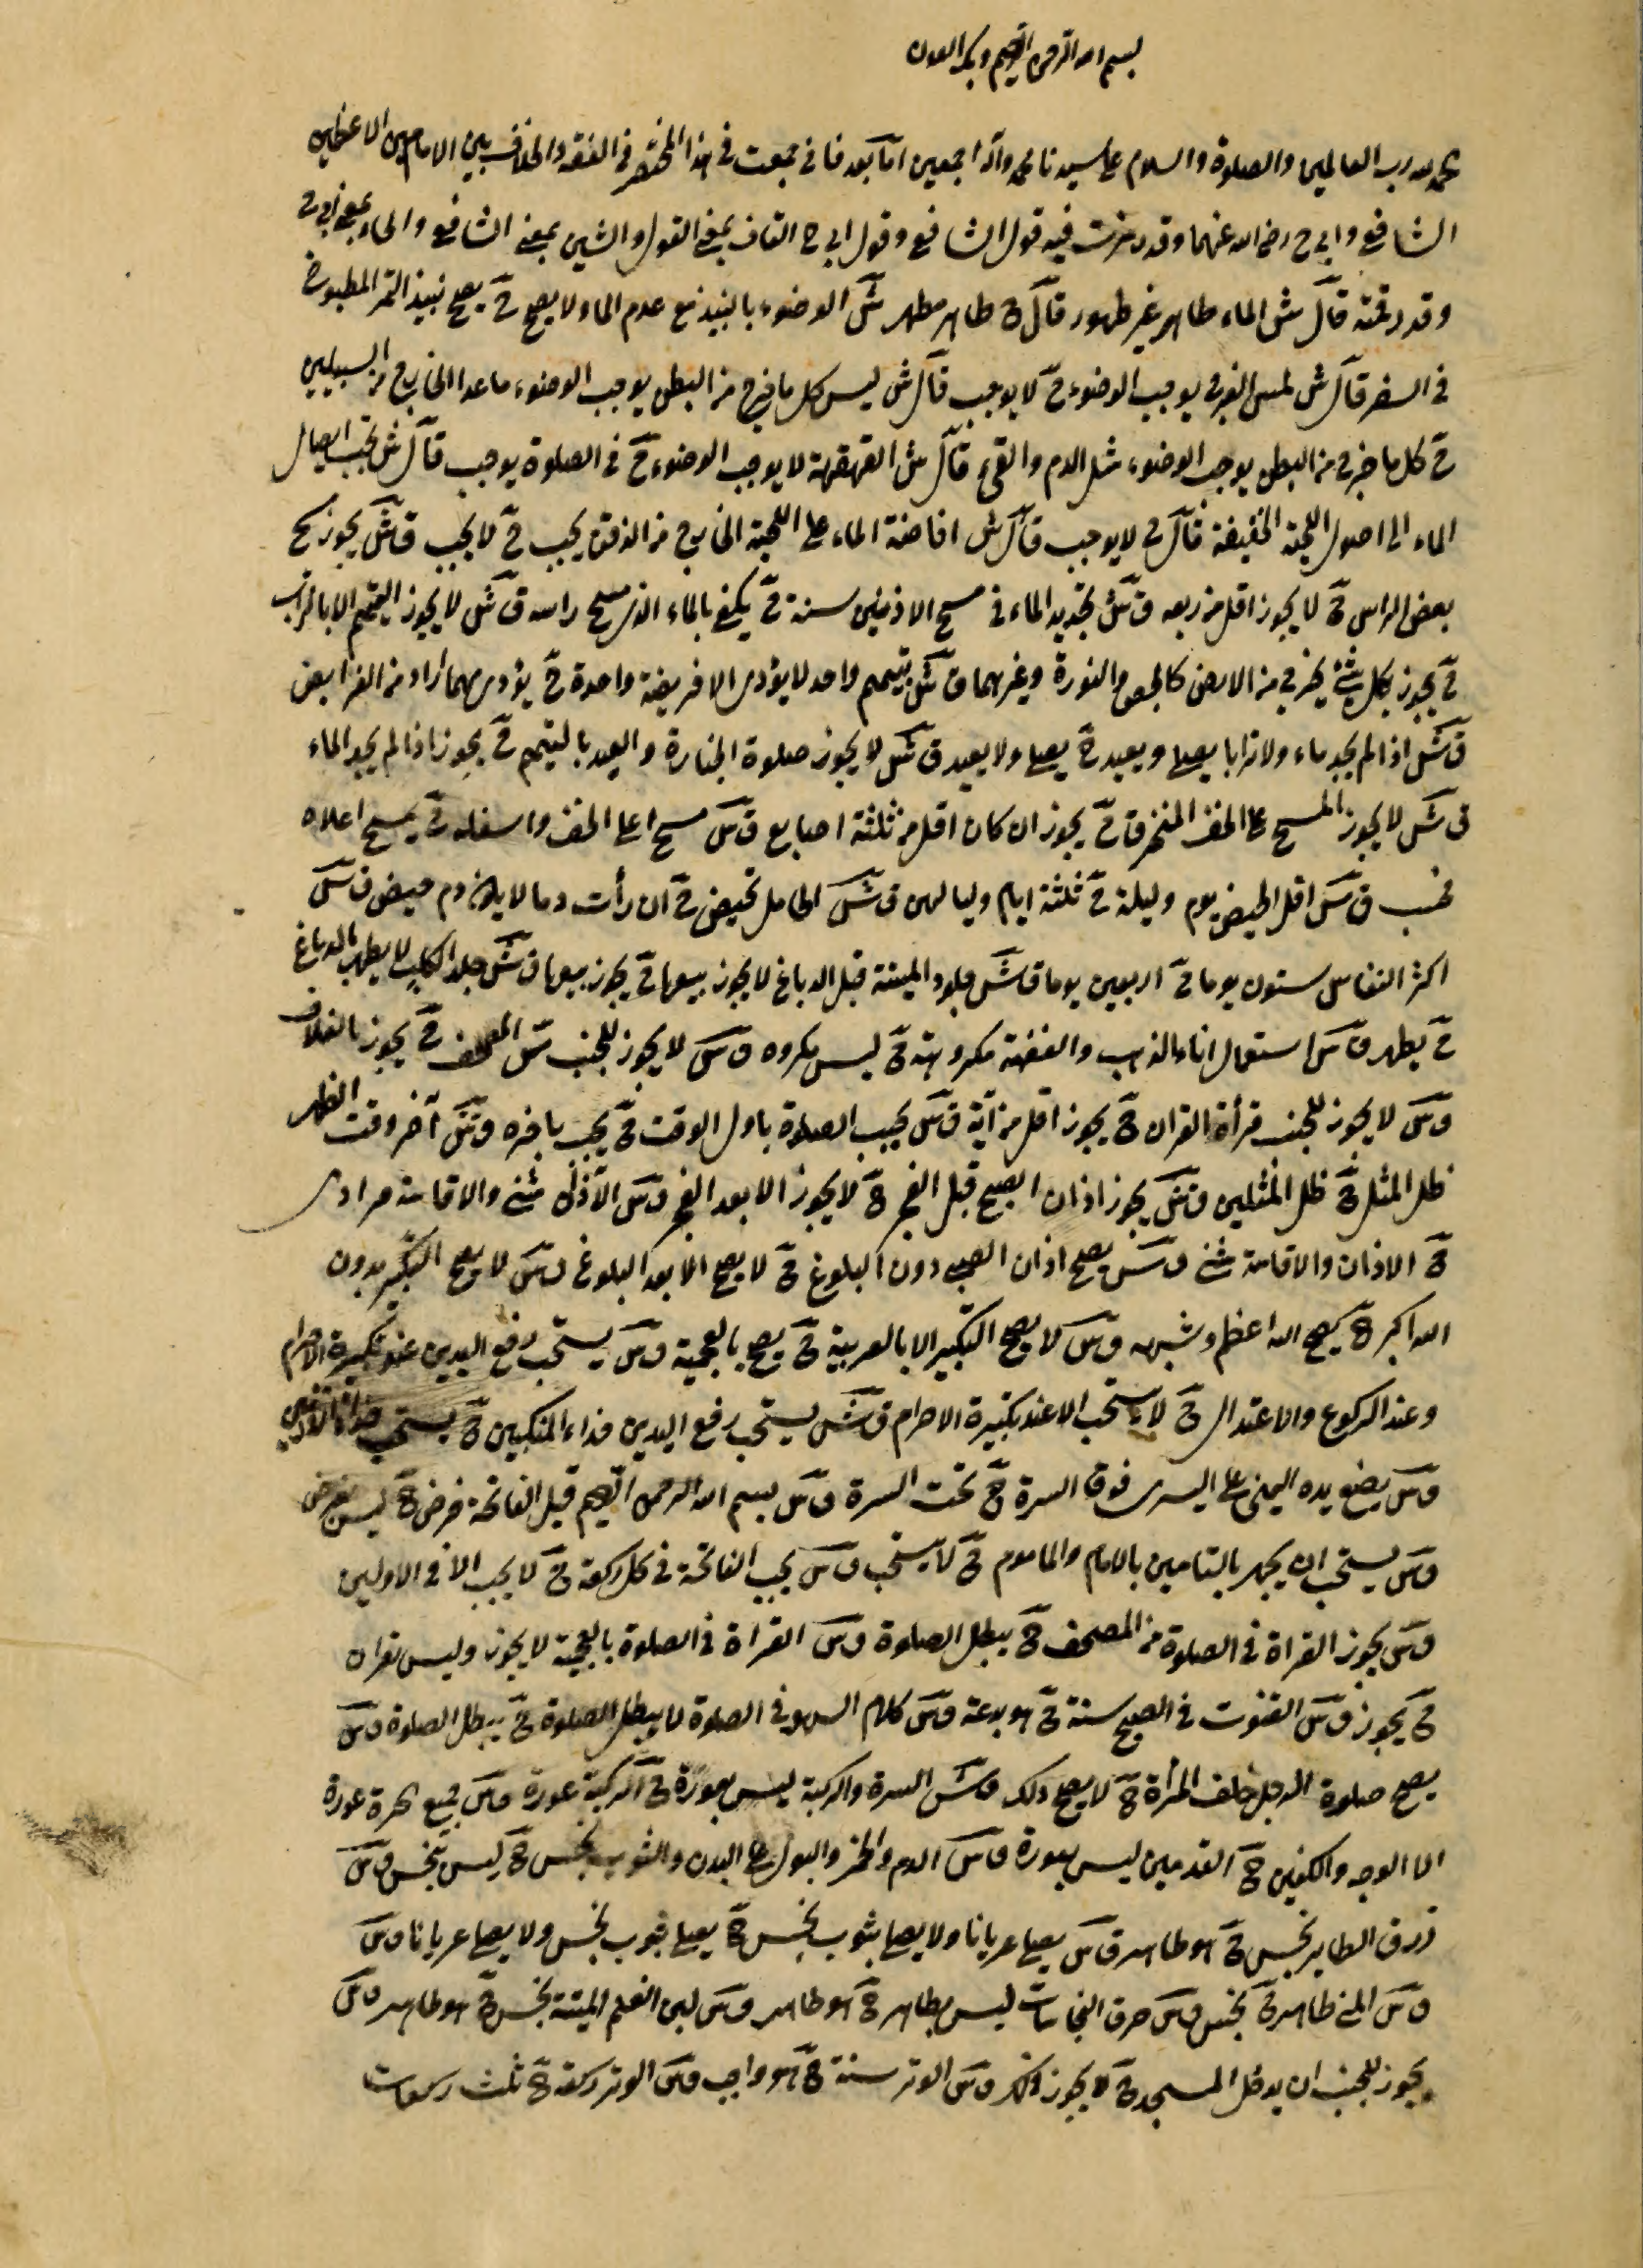 بسم الله الرحمن الرحيم وبه العون
الحمد لله رب العالمين والصلوة والسلام على سيدنا محمد وآله اجمعين اما بعد فانى جمعت فى هذا المختصر فى الفقه والخلاف بين الامامين الاعظمين
الشافعى وابى ح رضى الله عنهما وقد رمزت فيه قول الشافعى وقول ابى ح القاف بمعنى القول والشين بمعنى الشافعى والحاء بمعنى ابى ح
وقد رقمته قال ش الماء طاهر غير طهور قال ح طاهر مطهر ش الوضوء بالنبيذ مع عدم الماء لا يصح ح يصح نبيذ التمر المطبوخ
فى السفر قال ش لمس الفرج يوجب الوضوء ح لا يوجب قال ش ليس كل ما خرج من البطن يوجب الوضوء ما عدا الخارج من السبيلين
ح كل ما خرج من البطن يوجب الوضوء مثل الدم والقىء قال ش القهقهة لا يوجب الوضوء ح فى الصلوة يوجب قال ش يجب ايصال
الماء الى اصول اللحية الخفيفة قال ح لا يوجب قال ش افاضة الماء على اللحية الخارج من الذقن يجب ح لا يجب ق ش يجوز مسح
بعض الراس ح لا يجوز اقل من ربعه ق ش تجديد الماء فى مسح الاذنين سنة ح يكفى بالماء الذى مسح راسه ق ش لا يجوز التيمم الا بالتراب
ح يجوز بكل شئ يخرج من الارض كالجص والنورة وغيرهما ق ش بتيمم واحد لا يؤدى الا فريضة واحدة ح يؤدى مهما اراد من الفرايض
ق ش اذا لم يجد ماء ولا ترابا يصلى ويعيد ح يصلى ولا يعيد ق ش لا يجوز صلوة الجنازة والعيد بالتيمم ح يجوز اذا لم يجد الماء
ق ش لا يجوز المسح على الخف المنخرق ح يجوز ان كان اقل من ثلثة اصابع ق ش مسح اعلى الخف واسفله ح يمسح اعلاه
فحسب ق ش اقل الحيض يوم وليلة ح ثلثة ايام ولياليهن ق ش الحامل تحيض ح ان رأت دما لا يكون دم حيض ق ش
اكثر النفاس ستون يوما ح اربعين يوما ق ش جلود الميتة قبل الدباغ لا يجوز بيعها ح يجوز بيعها ق ش جلد الكلب لا يطهر بالدباغ
ح يطهر ق ش استعمال اناء الذهب والفضة مكروهة ح ليس مكروه ق ش لا يجوز للجنب مس المصحف ح يجوز بالغلاف
ق ش لا يجوز للجنب قرأة القران ح يجوز اقل من آية ق ش يجب الصلوة باول الوقت ح يجب باخره ق ش آخر وقت الظهر
ظل المثل ح ظل المثلين ق ش يجوز اذان الصبح قبل الفجر ح لا يجوز الا بعد الفجر ق ش الآذان مثنى والاقامة فرادى
ح الاذان والاقامة مثنى ق ش يصح اذان الصبى دون البلوغ ح لا يصح الا بعد البلوغ ق ش لا يصح التكبير بدون
الله اكبر ح يصح الله اعظم وشبهه ق ش لا يصح التكبير الا بالعربية ح يصح بالعجمية ق ش يستحب رفع اليدين عند تكبيرة الاحرام
وعند الركوع والاعتدال ح لا يستحب الا عند تكبيرة الاحرام ق ش يستحب رفع اليدين حذاء المنكبين ح يستحب حذاء الاذنين
ق ش يضع يده اليمنى على اليسرى فوق السرة ح تحت السرة ق ش بسم الله الرحمن الرحيم قبل الفاتحة فرض ح ليس بفرض
ق ش يستحب ان يجهر بالتامين بالامام والماموم ح لا يستحب ق ش يجب الفاتحة فى كل ركعة ح لا يجب الا فى الاولين
ق ش يجوز القراة فى الصلوة من المصحف ح يبطل الصلوة ق ش القراة فى الصلوة بالعجمية لا يجوز وليس بقران
ح يجوز ق ش القنوت فى الصبح سنة ح هو بدعة ق ش كلام السهو فى الصلوة لا يبطل الصلوة ح يبطل الصلوة ق ش
يصح صلوة الرجل خلف المرأة ح لا يصح ذلك ق ش السرة والركبة ليس بعورة ح الركبة عورة ق ش جميع الحرة عورة
الا الوجه والكفين ح القدمين ليس بعورة ق ش الدم والخمر والبول على البدن والثوب نجس ح ليس بنجس ق ش
ذرق الطاير نجس ح هو طاهر ق ش يصلى عريانا ولا يصلى بثوب نجس ح يصلى بثوب نجس ولا يصلى عريانا ق ش
ق ش المنى طاهر ح نجس ق ش حرق النجاسات ليس بطاهر ح هو طاهر ق ش لبن الغنم الميتة نجس ح هو طاهر ق ش
يجوز للجنب ان يدخل المسجد ح لا يجوز ذلك ق ش الوتر سنة ح هو واجب ق ش الوتر ركعة ح ثلث ركعات